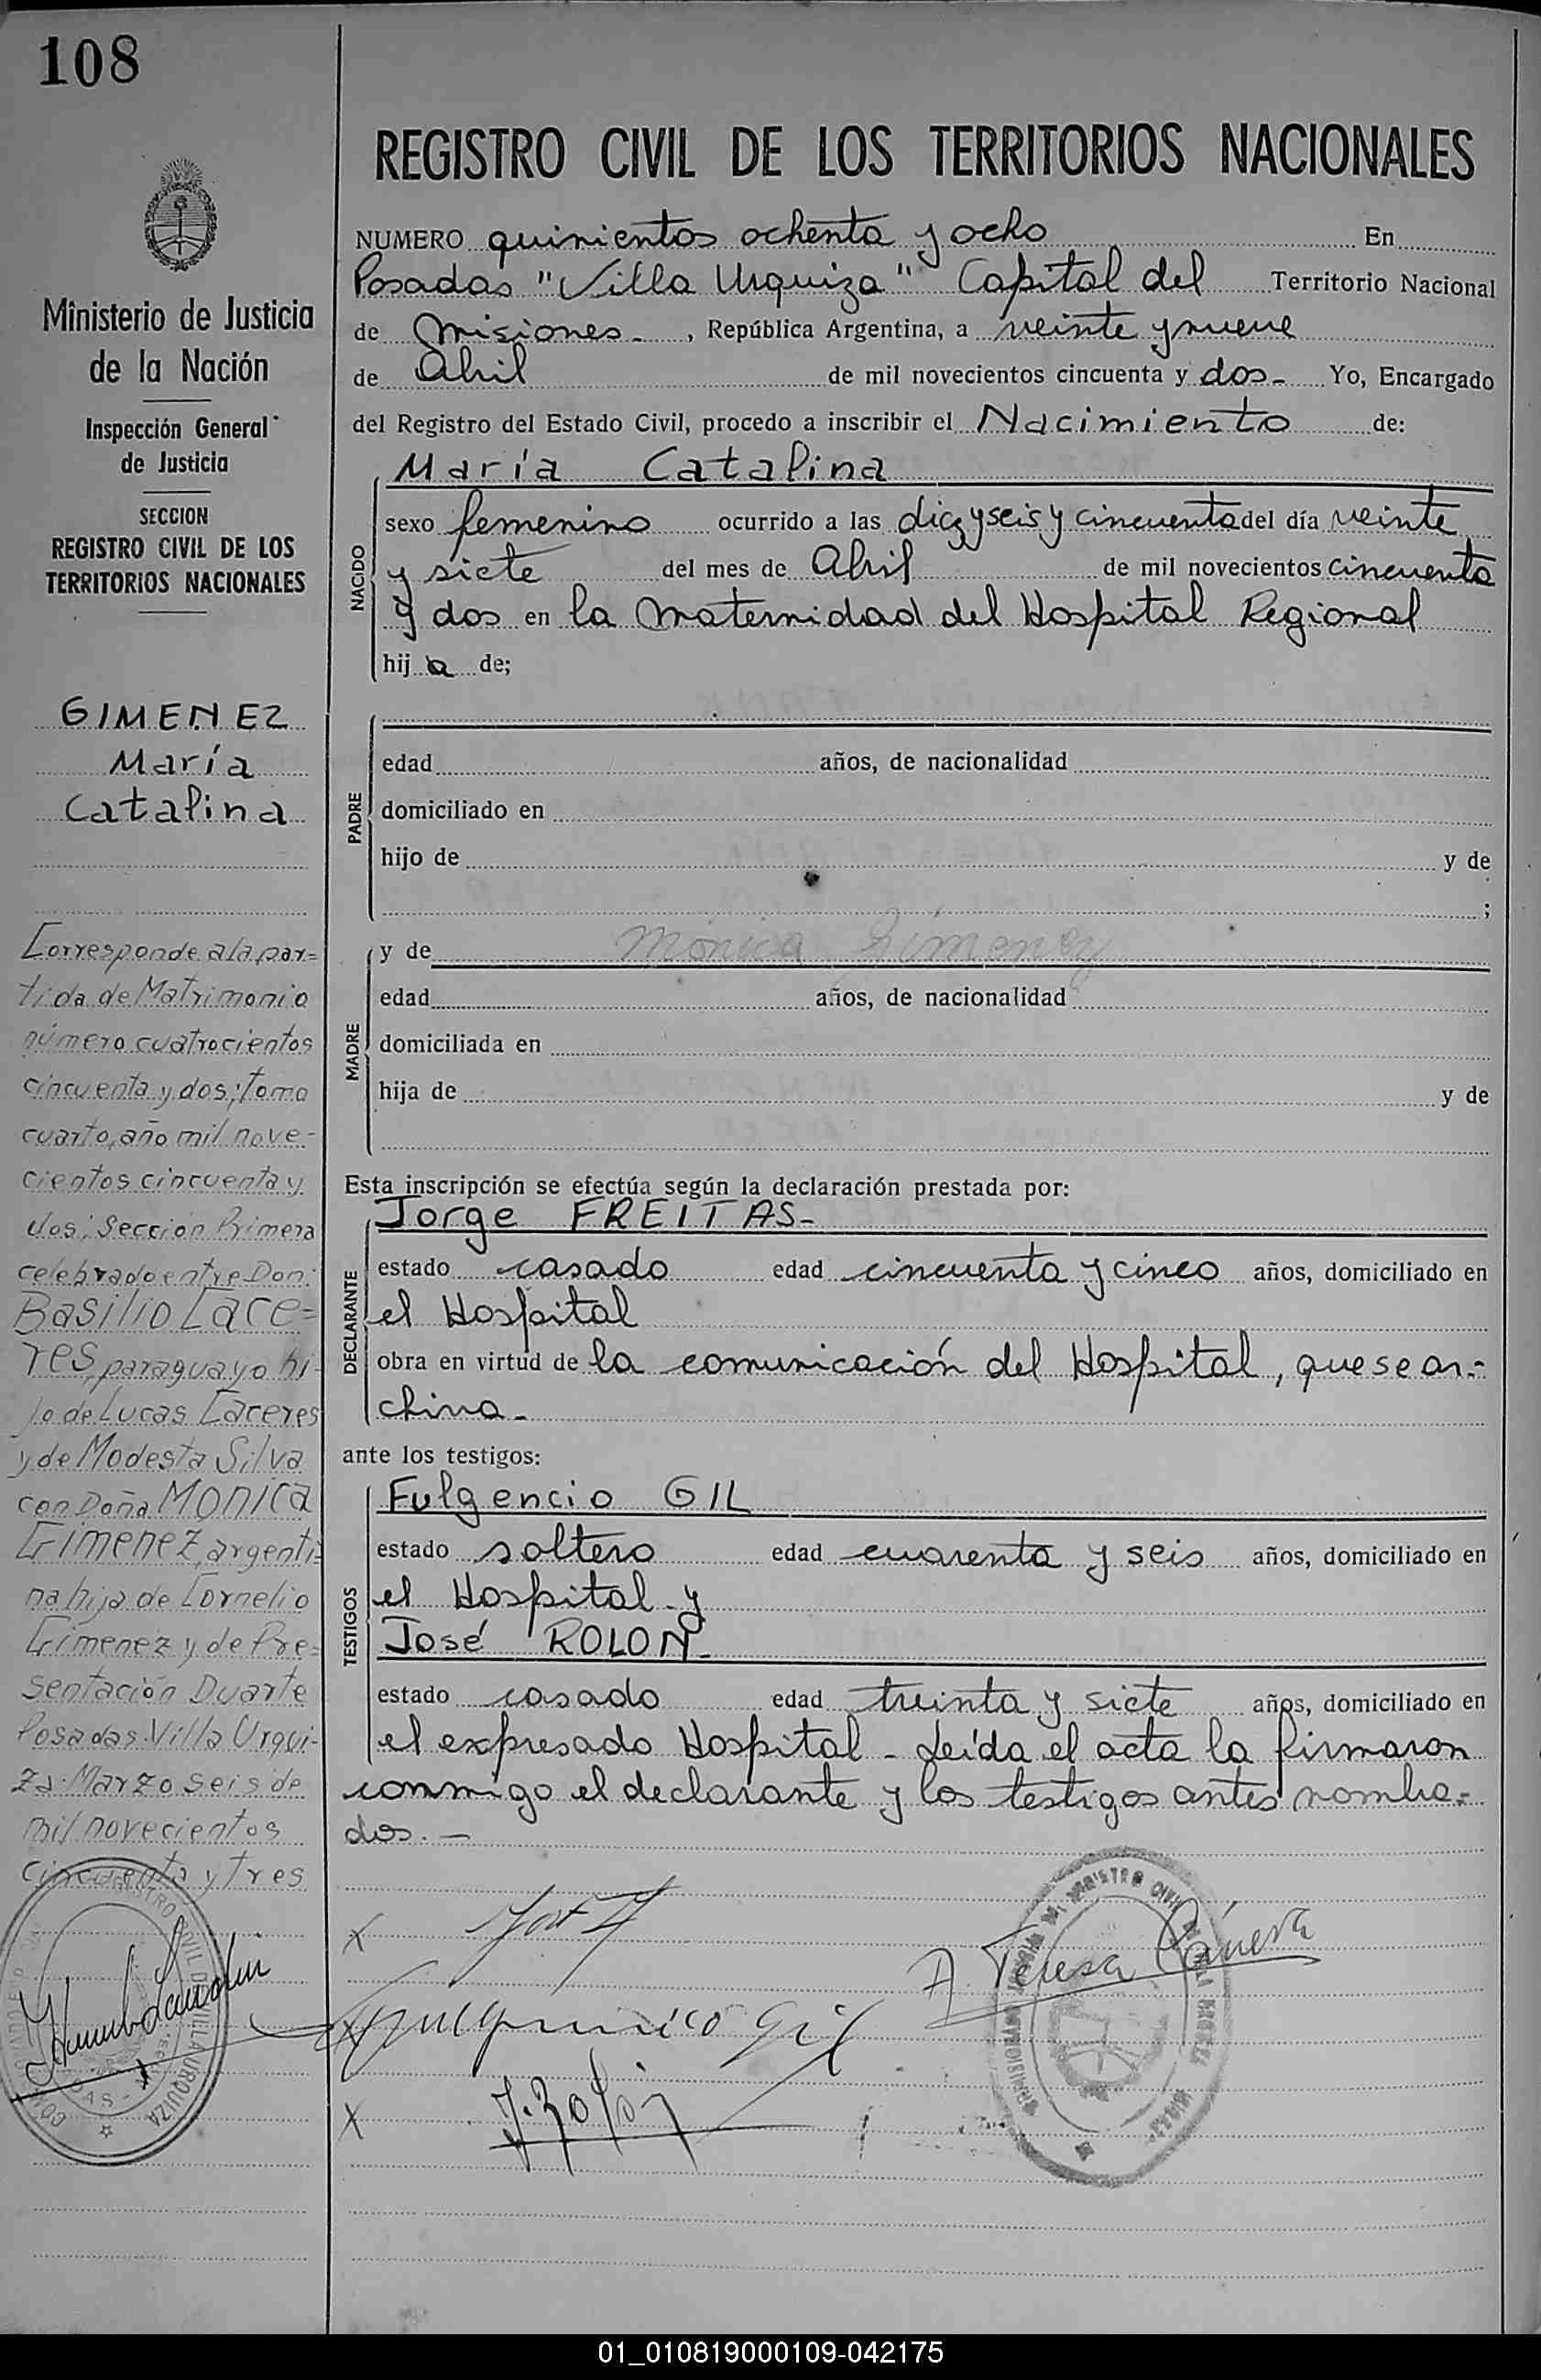 108
Ministerio de Justicia
de la Nación
Inspección General
de Justicia
SECCION
REGISTRO CIVIL DE LOS
TERRITORIOS NACIONALES
GIMENEZ
María
Catalina
Corresponde a la par=
tida de Matrimonio
número cuatrocientos
cincuenta y dos; tomo
cuarto, año mil nove-
cientos cincuenta y
dos; Sección Primera
celebrado entre Don:
BASILIO Cace=
res, paraguayo hi-
jo de Lucas Caceres
y de Modesta Silva
con Doña MONICA
GIMENEZ, argenti=
na hija de Cornelio
Gimenez y de Pre=
sentación Duarte
Posadas Villa Urqui-
za. Marzo seis de
mil novecientos
cincuenta y tres
REGISTRO CIVIL DE LOS TERRITORIOS NACIONALES
NUMERO quinientos ochenta y ocho En
Posadas "Villa Urquiza" Capital del Territorio Nacional
de Misiones-, República Argentina, a veinte y nueve
de Abril de mil novecientos cincuenta y dos- Yo, Encargado
del Registro del Estado Civil, procedo a inscribir el Nacimiento de:
María Catalina
NACIDO
sexo femenino ocurrido a las diez y seis y cincuenta del día veinte
y siete del mes de Abril de mil novecientos cincuenta
y dos en la Maternidad del Hospital Regional
hij a de;
PADRE
edad años, de nacionalidad
domiciliado en
hijo de y de
;
MADRE
y de Mónica Gimenez
edad años, de nacionalidad
domiciliada en
hija de y de
Esta inscripción se efectúa según la declaración prestada por:
DECLARANTE
Jorge FREITAS-
estado casado edad cincuenta y cinco años, domiciliado en
el Hospital
obra en virtud de la comunicación del Hospital, que se ar.-
chiva-
ante los testigos:
TESTIGOS
Fulgencio GIL
estado soltero edad cuarenta y seis años, domiciliado en
el Hospital y
José ROLON-
estado casado edad treinta y siete años, domiciliado en
el expresado Hospital - Leída el acta la firmaron
conmigo el declarante y los testigos antes nombra.-
dos.-
X
Gil
X
VILLA URQUIZA
01_010819000109-042175